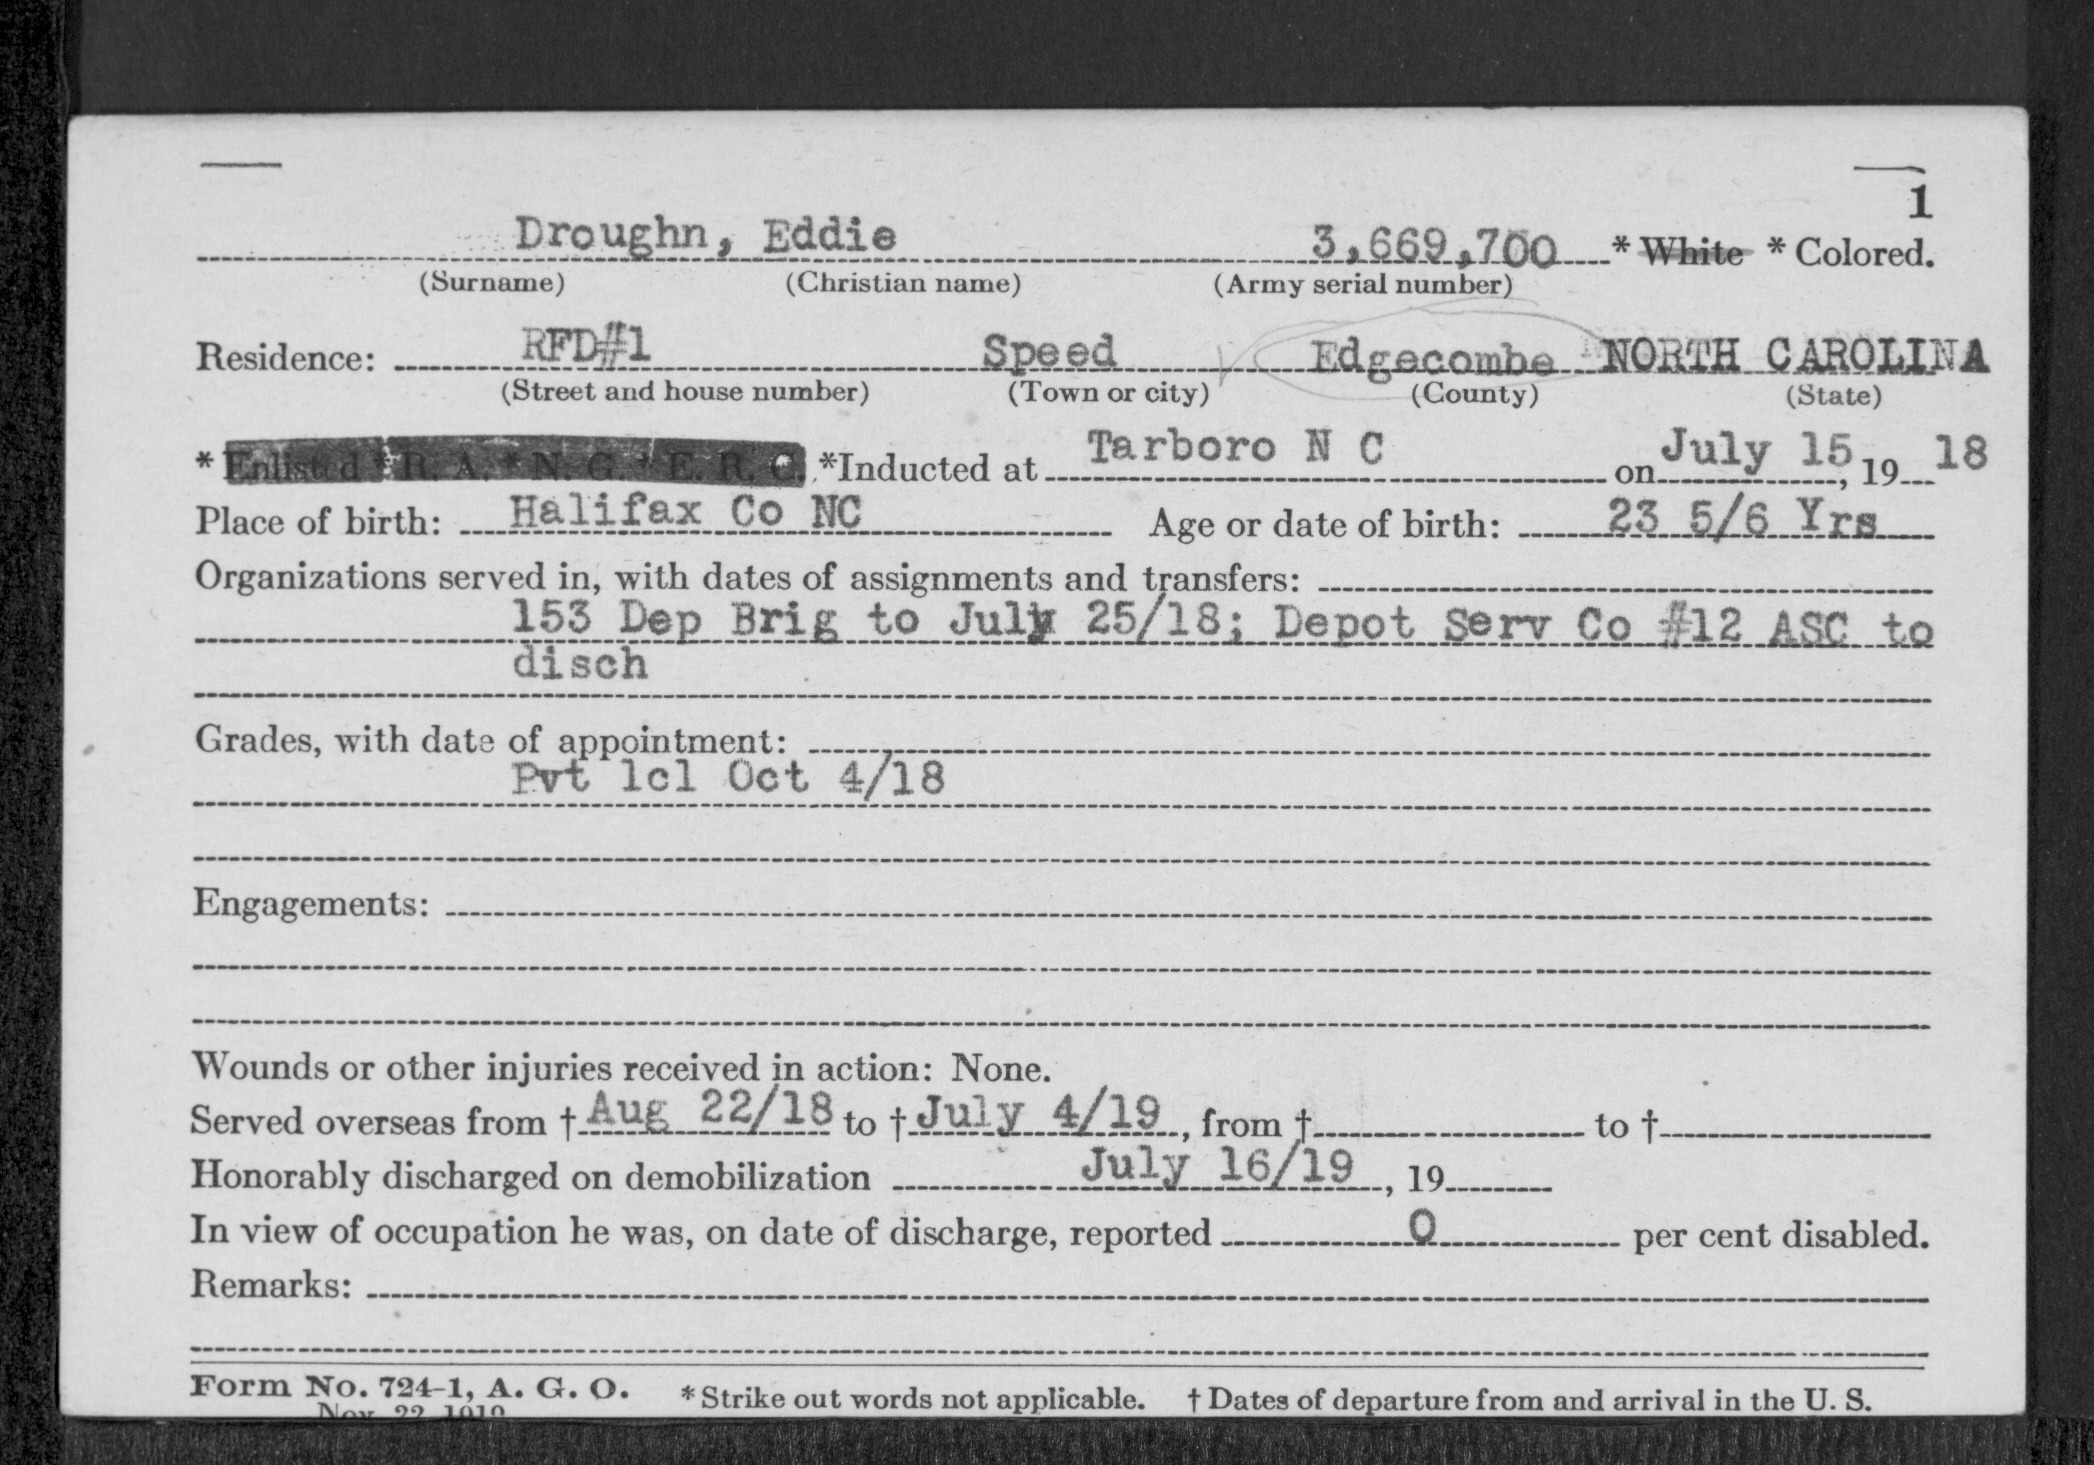 1
Droughn, Eddie 3,669,700 * White * Colored.
(Surname) (Christian name) (Army serial number)
Residence: RFD#1 Speed Edgecombe NORTH CAROLINA
(Street and house number) (Town or city) (County) (State)
* Enlisted * R. A. * N. G. * E. R. C. *Inducted at Tarboro N C on July 15, 19 18
Place of birth: Halifax Co NC Age or date of birth: 23 5/6 Yrs
Organizations served in, with dates of assignments and transfers:
153 Dep Brig to July 25/18; Depot Serv Co #12 ASC to
disch
Grades, with date of appointment:
Pvt 1cl Oct 4/18
Engagements:
Wounds or other injuries received in action: None.
Served overseas from † Aug 22/18 to † July 4/19, from † to †
Honorably discharged on demobilization July 16/19, 19
In view of occupation he was, on date of discharge, reported 0 per cent disabled.
Remarks:
Form No. 724-1, A. G. O. * Strike out words not applicable. † Dates of departure from and arrival in the U. S.
Nov. 22, 1919